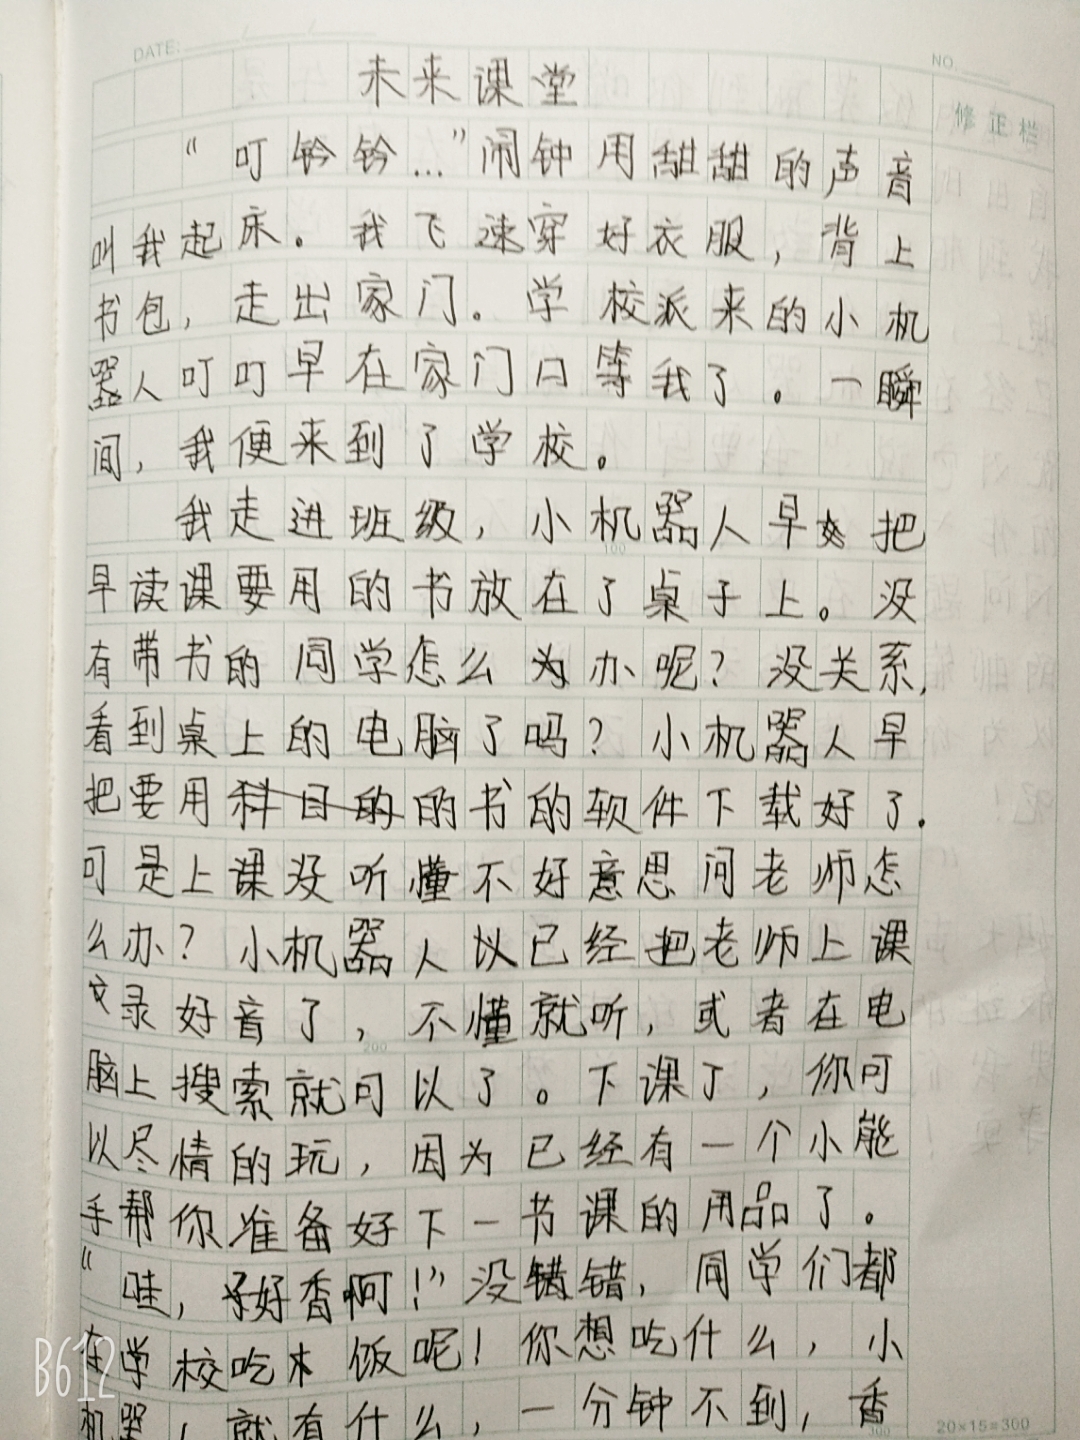 DATE:
NO.
未来课堂
修正栏
“叮铃铃…”闹钟用甜甜的声音
叫我起床。我飞速穿好衣服，背上
书包，走出家门。学校派来的小机
器人叮叮早在家门口等我了。一瞬
间，我便来到了学校。
我走进班级，小机器人早把
100
早读课要用的书放在了桌子上。没
有带书的同学怎么办呢？没关系，
看到桌上的电脑了吗？小机器人早
把要用科目的的书的软件下载好了.
可是上课没听懂不好意思问老师怎
么办？小机器人以已经把老师上课
录好音了，不懂就听，或者在电
200
脑上搜索就可以了。下课了，你可
以尽情的玩，因为已经有一个小能
手帮你准备好下一节课的用品了。
“哇，好香啊！”没错，同学们都
在学校吃饭呢！你想吃什么，小
机器，就有什么，一分钟不到，香
300
20×15=300
B612